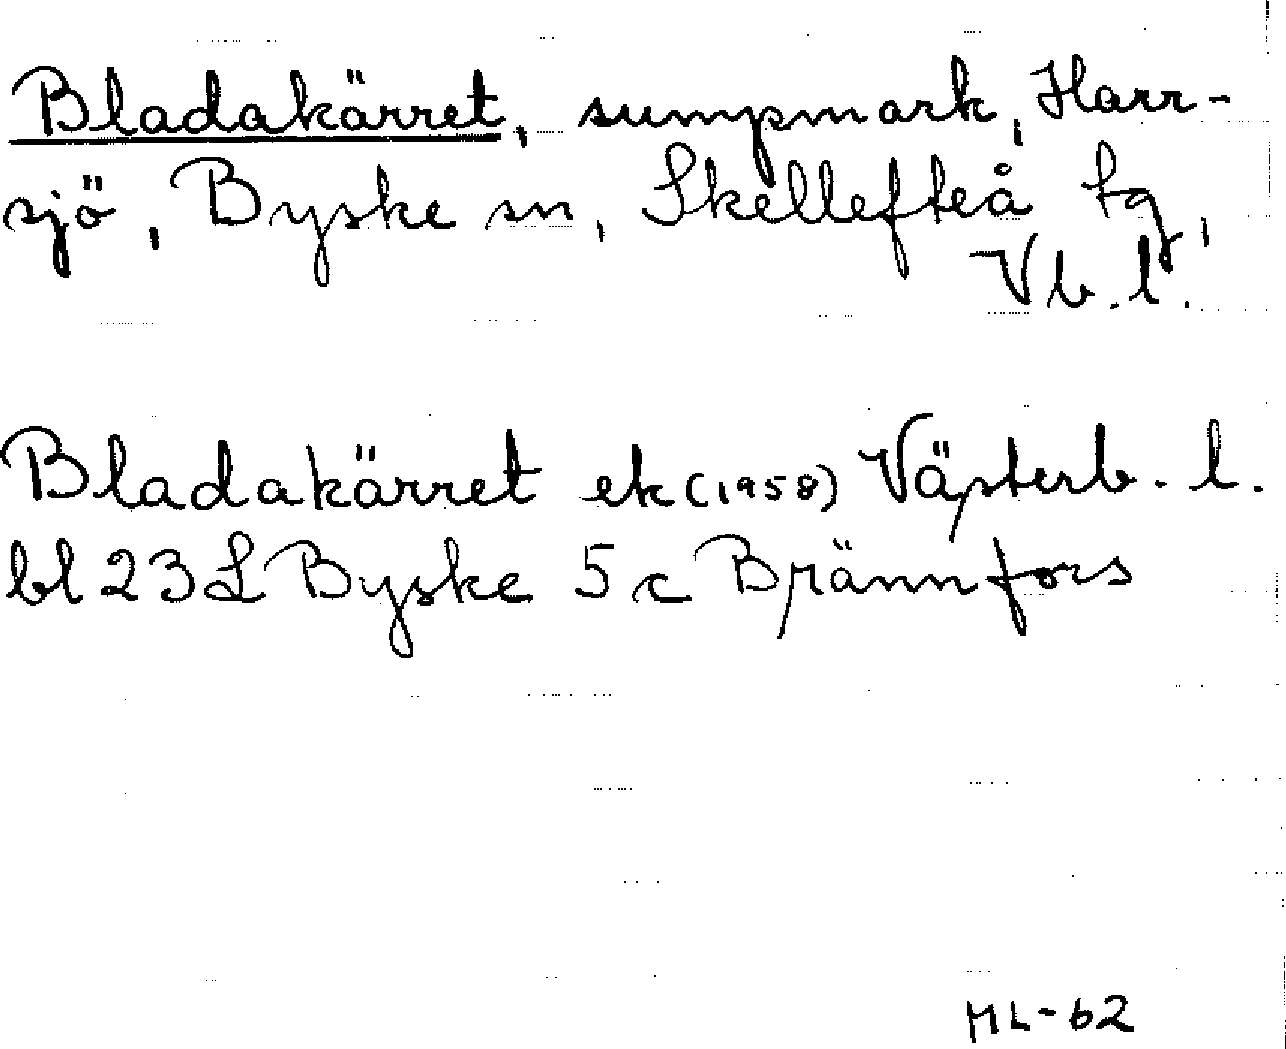 Bladakärret, sumpmark, Harr-
sjö, Byske sn, Skellefteå tg,
Vb. l.
Bladakärret ek (1958) Västerb. l.
bl 23 L Byske 5 c Brännfors
ML-62